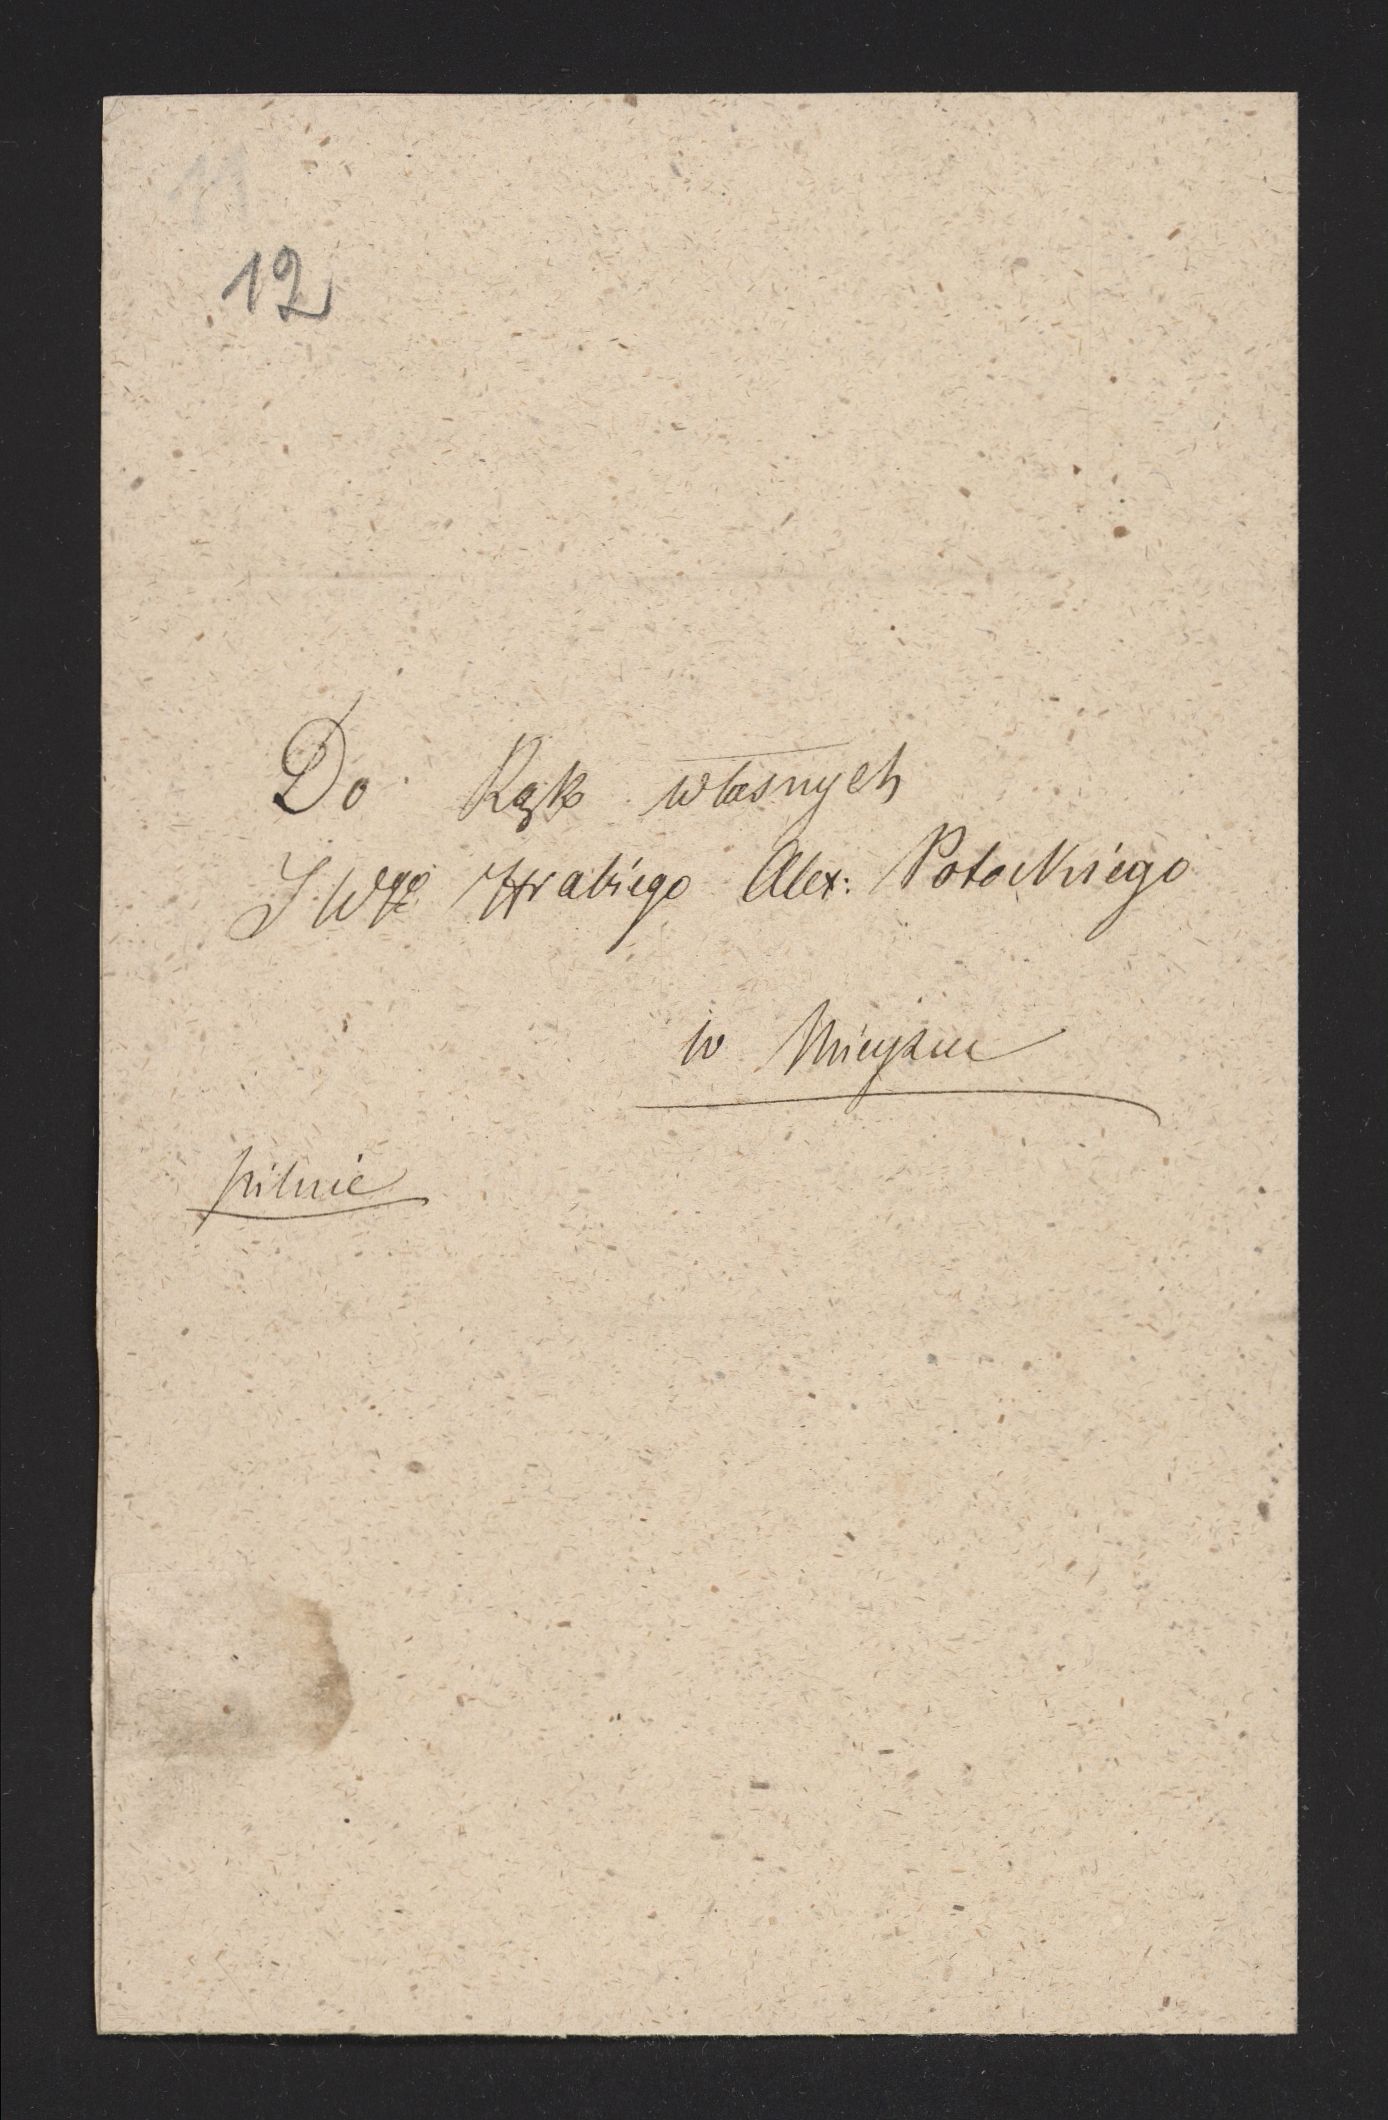 11
12
Do Rąk własnych
JWgo Hrabiego Alex: Potockiego
w Mieyscu
pilnie